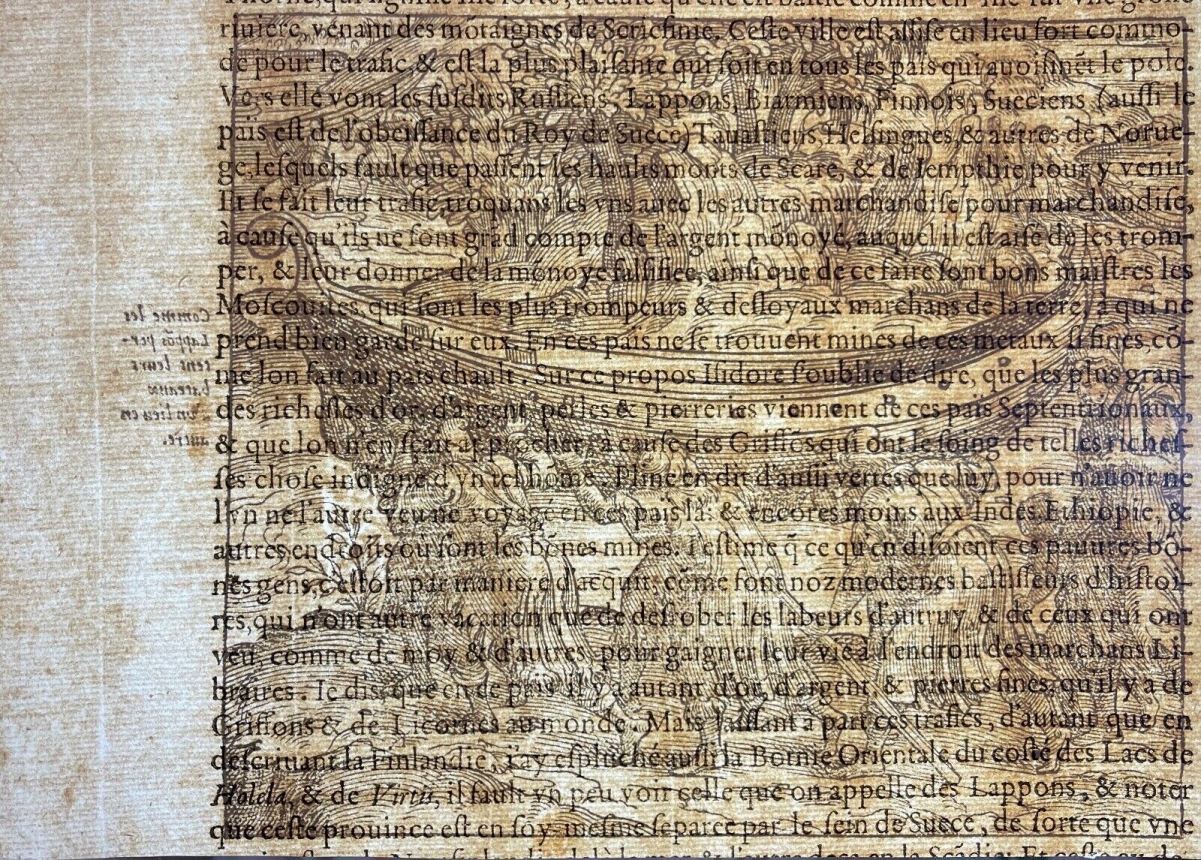 riuiere, venant des mõtaignes de Scricfinie. Ceste ville est assise en lieu fort commo-
de pour le trafic, & est la plus plaisante qui soit en tous les païs qui auoisinẽt le pole.
Vers elle vont les susdits Russiens, Lappons, Biarmiens, Finnois, Sueciens (aussi le
païs est de l'obeissance du Roy de Suece) Tauastiens, Helsingues, & autres de Norue-
ge, lesquels fault que passent les haults monts de Scare, & de Iempthie pour y venir.
Et se fait leur trafic troquans les vns auec les autres marchandise pour marchandise,
à cause qu'ils ne font grãd compte de l'argent mõnoyé, auquel il est aisé de les trom-
per, & leur donner de la monoye falsifiee, ainsi que de ce faire sont bons maistres les
Moscouites, qui sont les plus trompeurs & desloyaux marchans de la terre, à qui ne
prend bien garde sur eux. En ces païs ne se trouuent mines de ces metaux si fines, cõ-
me lon fait au païs chault. Sur ce propos Isidore s'oublie de dire, que les plus gran-
des richesses d'or, d'argent, perles & pierreries viennent de ces païs Septentrionaux,
& que lon n'en sçait approcher, à cause des Griffõs qui ont le soing de telles riches-
ses chose indigne d'vn tel hõme. Pline en dit d'aussi vertes que luy, pour n'auoir ne
l'vn ne l'autre veu ne voyagé en ces païs là: & encores moins aux Indes, Ethiopie, &
autres endroits où sont les bõnes mines. I'estime q̃ ce qu'en disoient ces pauures bõ-
nes gens, c'estoit par maniere d'acquit, cõme font noz modernes bastisseurs d'histoi-
res, qui n'ont autre vacation que de desrober les labeurs d'autruy, & de ceux qui ont
veu, comme de moy & d'autres, pour gaigner leur vie à l'endroit des marchans Li-
braires. Ie dis que en ce païs il y a autant d'or, d'argent, & pierres fines, qu'il y a de
Griffons & de Licornes au monde. Mais laissant à part ces trafics, d'autant que en
descriuant la Finlandie, i'ay espluché aussi la Botnie Orientale du costé des Lacs de
Holela, & de Virtis, il fault vn peu voir celle que on appelle des Lappons, & noter
que ceste prouince est en soy-mesme separee par le sein de Suece, de sorte que vne
Comme les
Lappõs por-
tent leurs
bateaux
d'vn lieu en
autre.